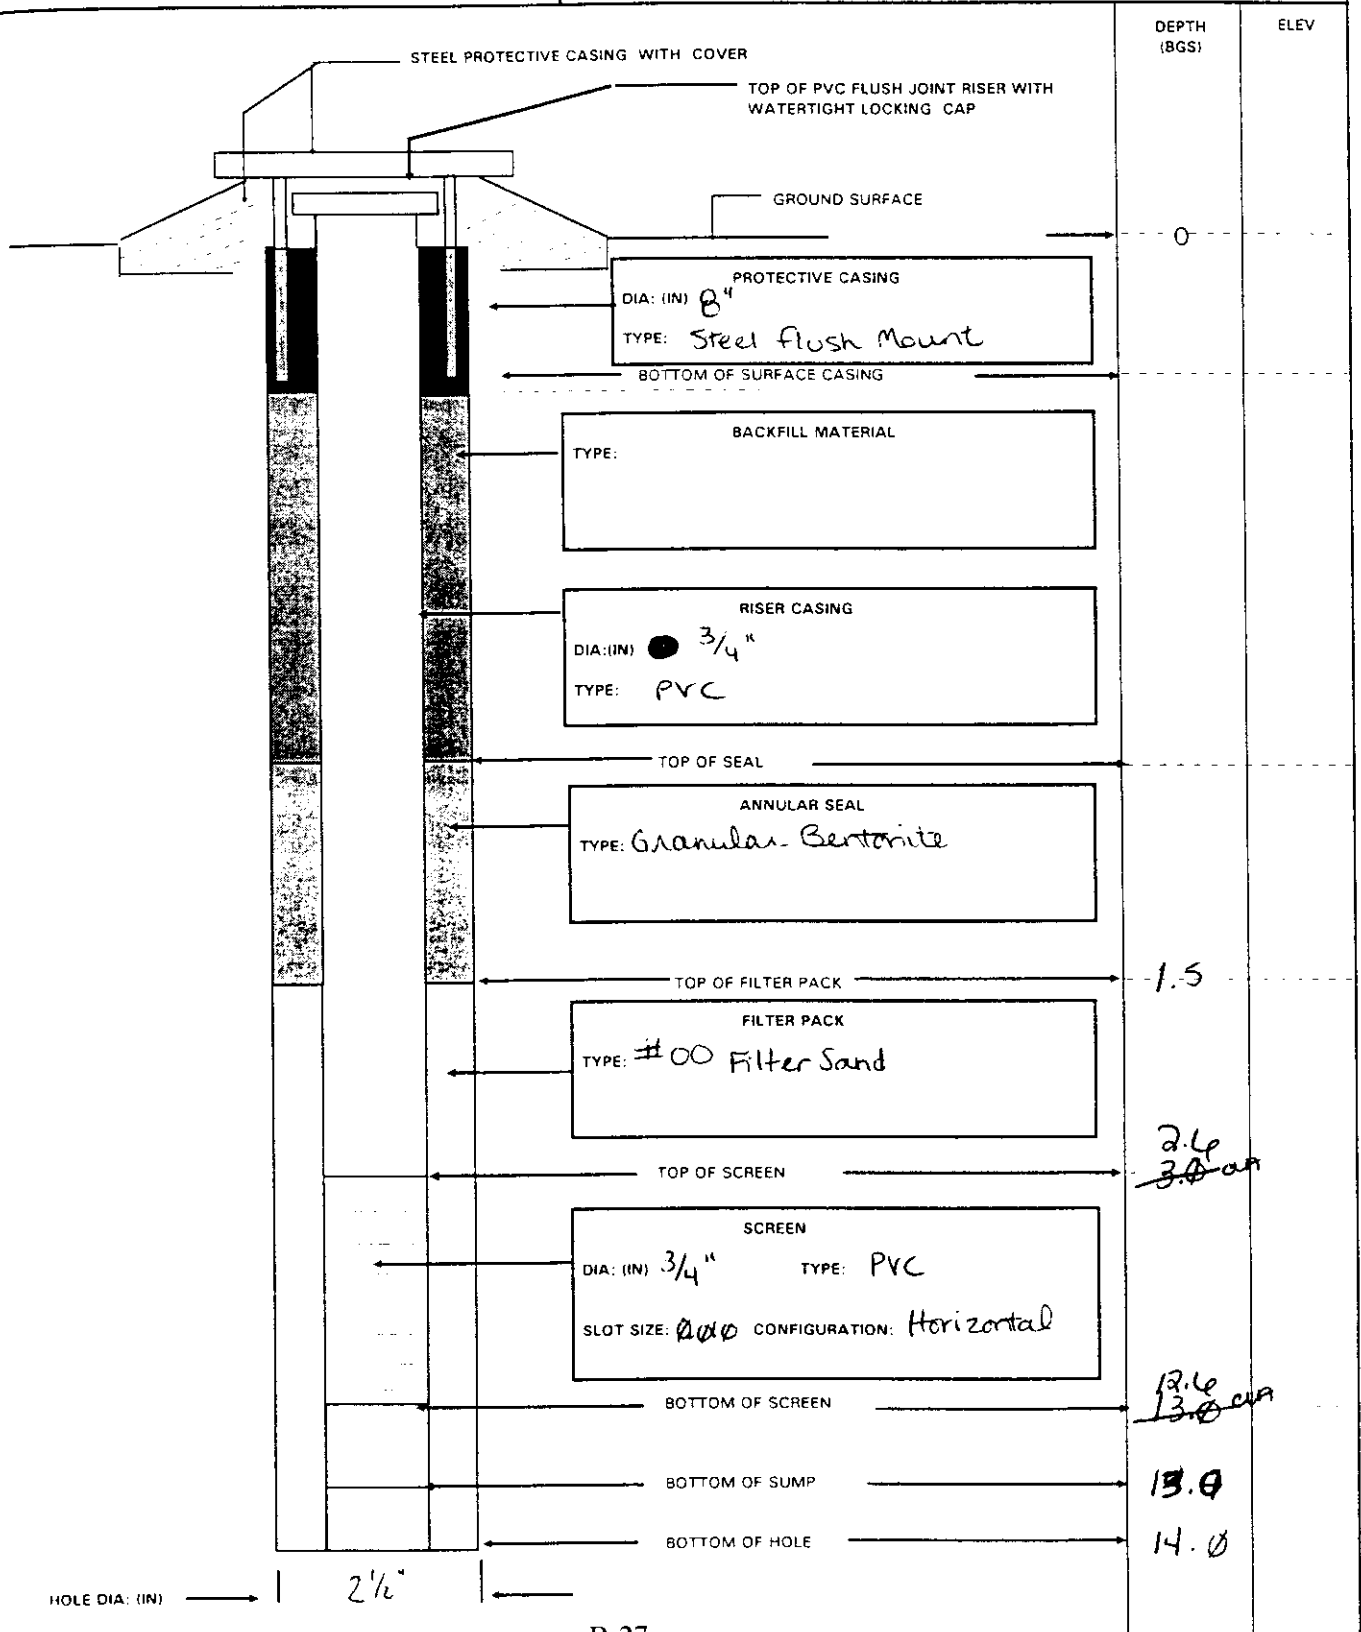 DEPTH
(BGS)
ELEV
STEEL PROTECTIVE CASING WITH COVER
TOP OF PVC FLUSH JOINT RISER WITH
WATERTIGHT LOCKING CAP
GROUND SURFACE
0
PROTECTIVE CASING
DIA: (IN) 8"
TYPE: Steel flush Mount
BOTTOM OF SURFACE CASING
BACKFILL MATERIAL
TYPE:
RISER CASING
DIA:(IN) 3/4"
TYPE: PVC
TOP OF SEAL
ANNULAR SEAL
TYPE: Granular Bentonite
TOP OF FILTER PACK
1.5
FILTER PACK
TYPE: #00 Filter Sand
2.6
TOP OF SCREEN
3.0
SCREEN
DIA: (IN) 3/4" TYPE: PVC
SLOT SIZE: CONFIGURATION: Horizontal
12.6
BOTTOM OF SCREEN
13.0
BOTTOM OF SUMP
BOTTOM OF HOLE
14.0
HOLE DIA: (IN) 2 1/2"